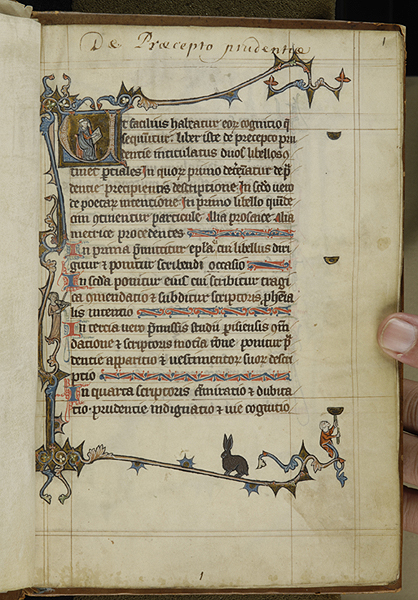 De Præcepto prudentiæ
1
Ut facilius habeatur eoꝝ cognitio q̄
sequūtur. liber iste de precepto pru
dentie intitulatus duos libellos ꝯ
tinet ꝑtiales In quoꝝ primo de
dentie precipientis descriptione In sc̄do ūero
de poetaꝝ intentione In primo libello
cim ꝯtinentur particule Alia prosaice Alia
metrice procedentes
In prima p̄mittitur ep̄la cui libellus diri
gitur et ponitur scribendi occasio
In sc̄da ponitur eius cui scribitur tragi
ca ꝯmendatio et subditur scriptoris
lis intentio
In tercia uero p̄missis studii ꝑisiensis
datione et scriptoris ponitur p̄
dentie apparitio et uestimentoꝝ suoꝝ descͥ
ptio
In quarta scriptoris āmiratio et dubita
tio prudentie indignatio et cognitio
1